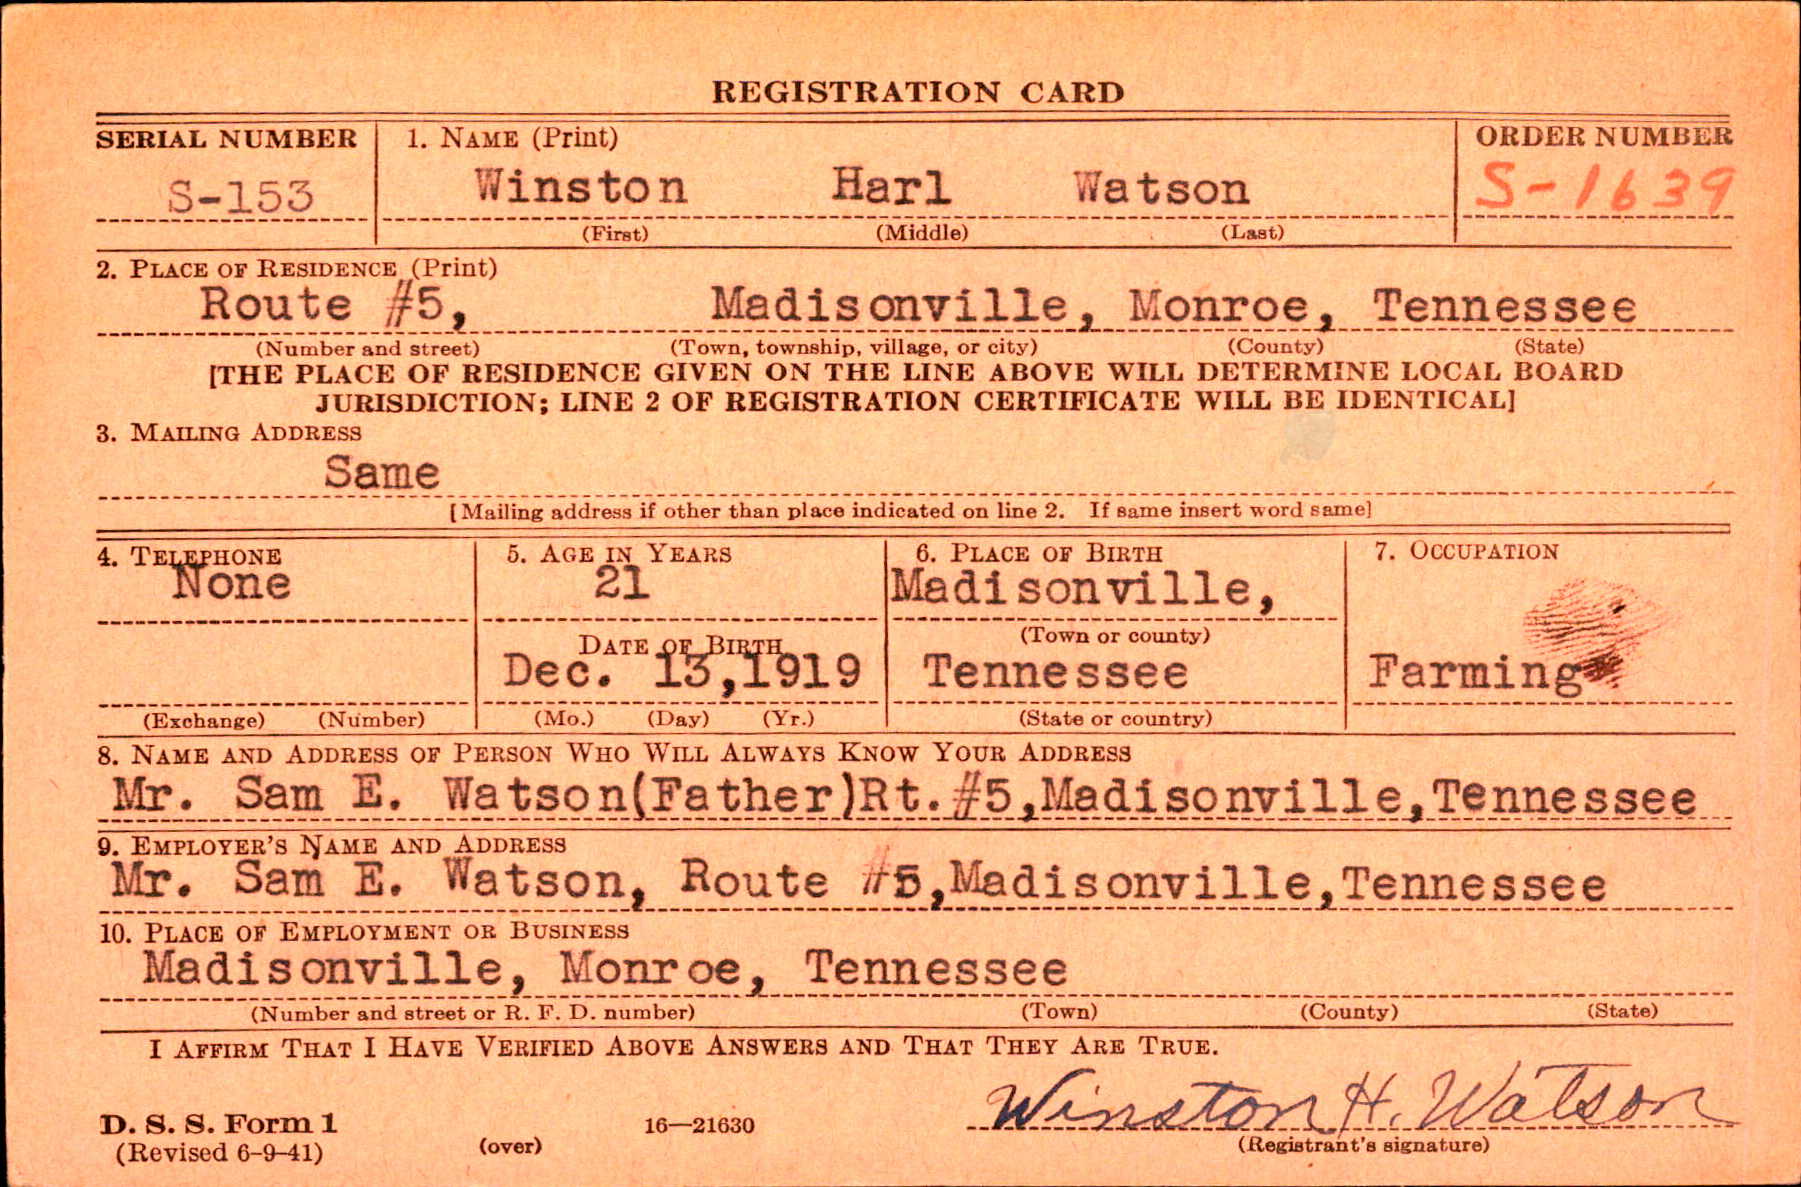 REGISTRATION CARD
SERIAL NUMBER 1. NAME (Print) ORDER NUMBER
S-153 Winston Harl Watson S-1639
(First) (Middle) (Last)
2. PLACE OF RESIDENCE (Print)
Route #5, Madisonville, Monroe, Tennessee
(Number and street) (Town, township, village, or city) (County) (State)
[THE PLACE OF RESIDENCE GIVEN ON THE LINE ABOVE WILL DETERMINE LOCAL BOARD
JURISDICTION; LINE 2 OF REGISTRATION CERTIFICATE WILL BE IDENTICAL]
3. MAILING ADDRESS
Same
[Mailing address if other than place indicated on line 2. If same insert word same]
4. TELEPHONE 5. AGE IN YEARS 6. PLACE OF BIRTH 7. OCCUPATION
None 21 Madisonville,
DATE OF BIRTH (Town or county)
Dec. 13,1919 Tennessee Farming
(Exchange) (Number) (Mo.) (Day) (Yr.) (State or country)
8. NAME AND ADDRESS OF PERSON WHO WILL ALWAYS KNOW YOUR ADDRESS
Mr. Sam E. Watson(Father)Rt.#5,Madisonville,Tennessee
9. EMPLOYER'S NAME AND ADDRESS
Mr. Sam E. Watson, Route #5,Madisonville,Tennessee
10. PLACE OF EMPLOYMENT OR BUSINESS
Madisonville, Monroe, Tennessee
(Number and street or R. F. D. number) (Town) (County) (State)
I AFFIRM THAT I HAVE VERIFIED ABOVE ANSWERS AND THAT THEY ARE TRUE.
Winston H. Watson
D. S. S. Form 1 16—21630
(Revised 6-9-41) (over) (Registrant's signature)